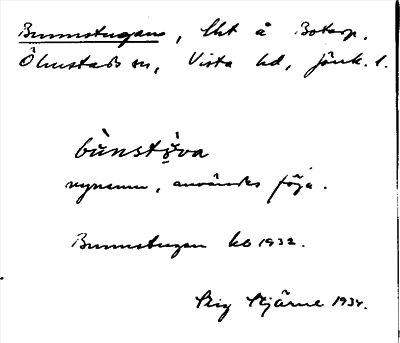 Brunnstugan, lht å Botarp.
Ölmstads sn, Vista hd, Jönk. l.
bùnstỳva
nynamn, användes föga.
Brunnstugan kb 1932.
Stig Stjärne 1934.